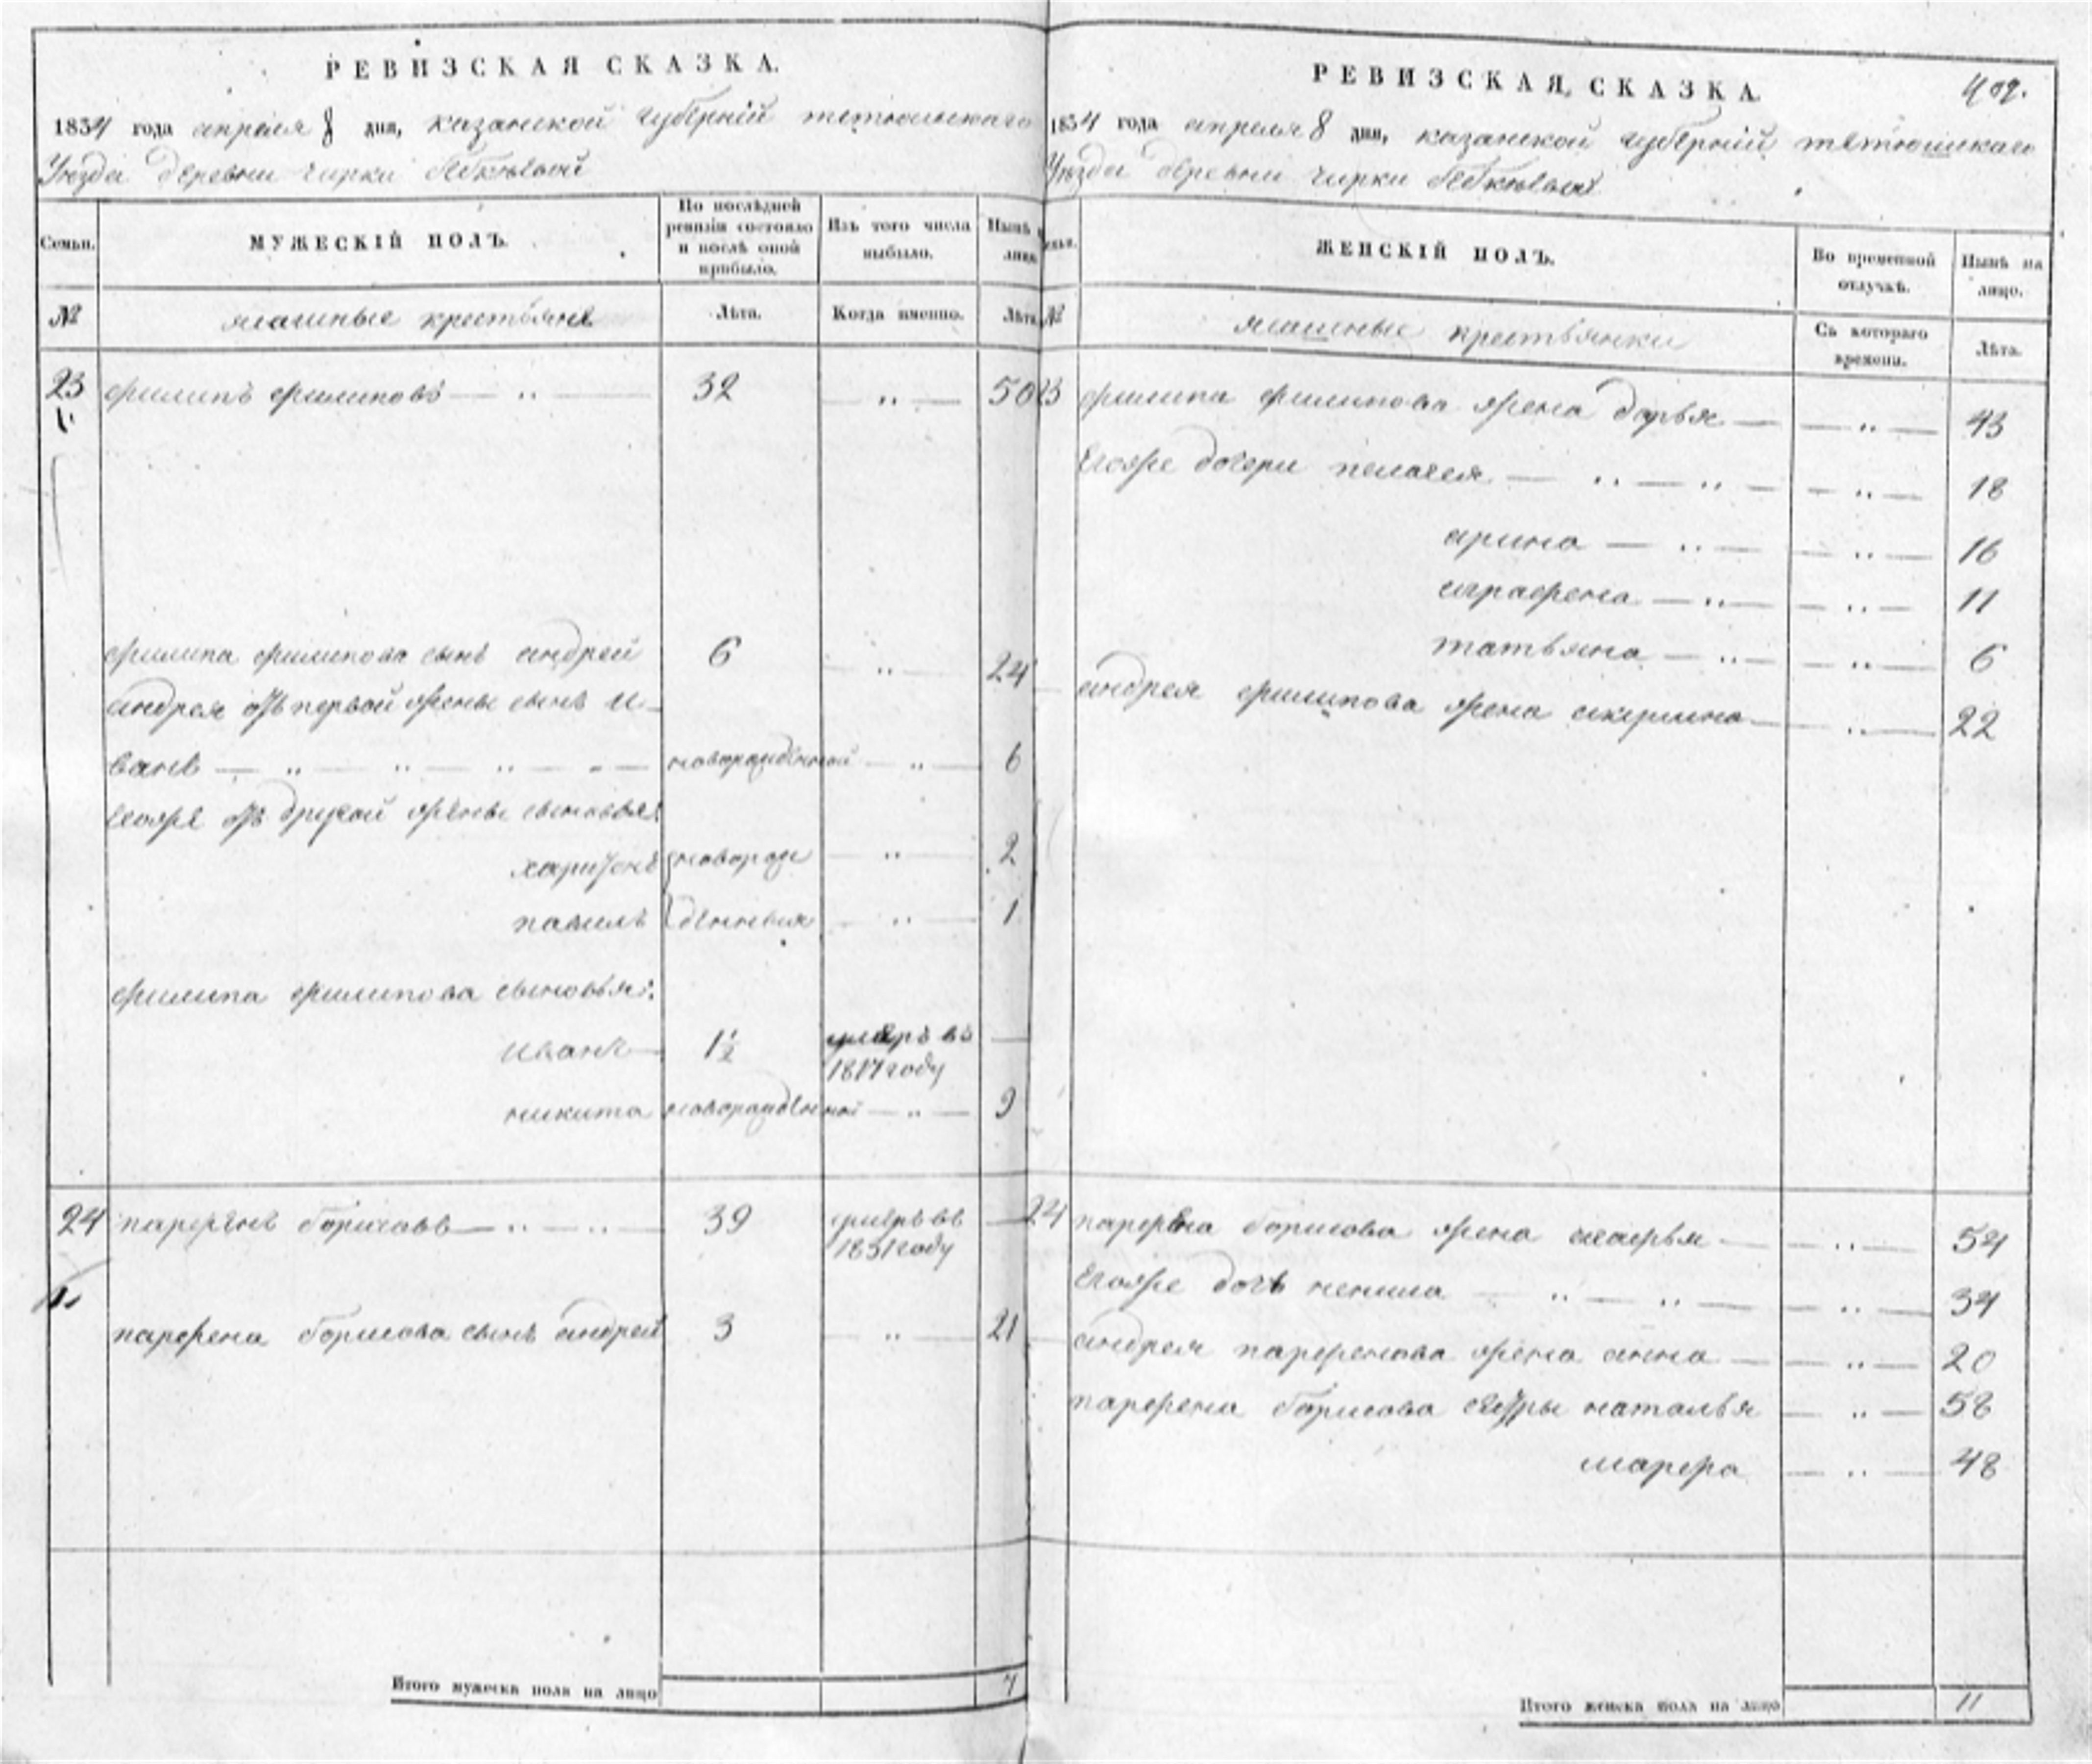 РЕВИЗСКАЯ СКАЗКА.
1834 года апреля 8 дня, казанской губерніи тетюшскаго
Уѣзда деревни чирки
Семьи.
МУЖЕСКІЙ ПОЛЪ.
По послѣдней ревизіи состояло и послѣ оной прибыло.
Изъ того числа выбыло.
Нынѣ на лицо.
№
ясашные крестьяне
Лѣта.
Когда именно.
Лѣта.
23 филипъ филиповъ 32 50
филипа филипова сынъ андрей 6 24
андрея отъ первой жены сынъ и-
ванъ новорожденной 6
егоже отъ другой жены сыновья:
харитонъ новорож 2
павилъ денныя 1
филипа филипова сыновья:
иванъ 1½ умеръ въ
1817 году
никита новорожденной 9
24 парфенъ борисовъ 39 умеръ въ
1831 году
парфена борисова сынъ андрей 3 21
Итого мужеска пола на лицо 7
РЕВИЗСКАЯ СКАЗКА.
409.
1834 года апреля 8 дня, казанской губерніи тетюшскаго
Уѣзда деревни чирки
Семьи.
ЖЕНСКІЙ ПОЛЪ.
Во временной отлучкѣ.
Нынѣ на лицо.
№
ясашные крестьянки
Съ котораго времени.
Лѣта.
23 филипа филипова жена дарья 43
Егоже дочери пелагея 18
арина 16
аграфена 11
татьяна 6
андрея филипова жена акулина 22
24 парфена борисова жена 54
Егоже дочь ненила 34
андрея парфенова жена анна 20
парфена борисова сестры наталья 58
марфа 48
Итого женска пола на лицо 11